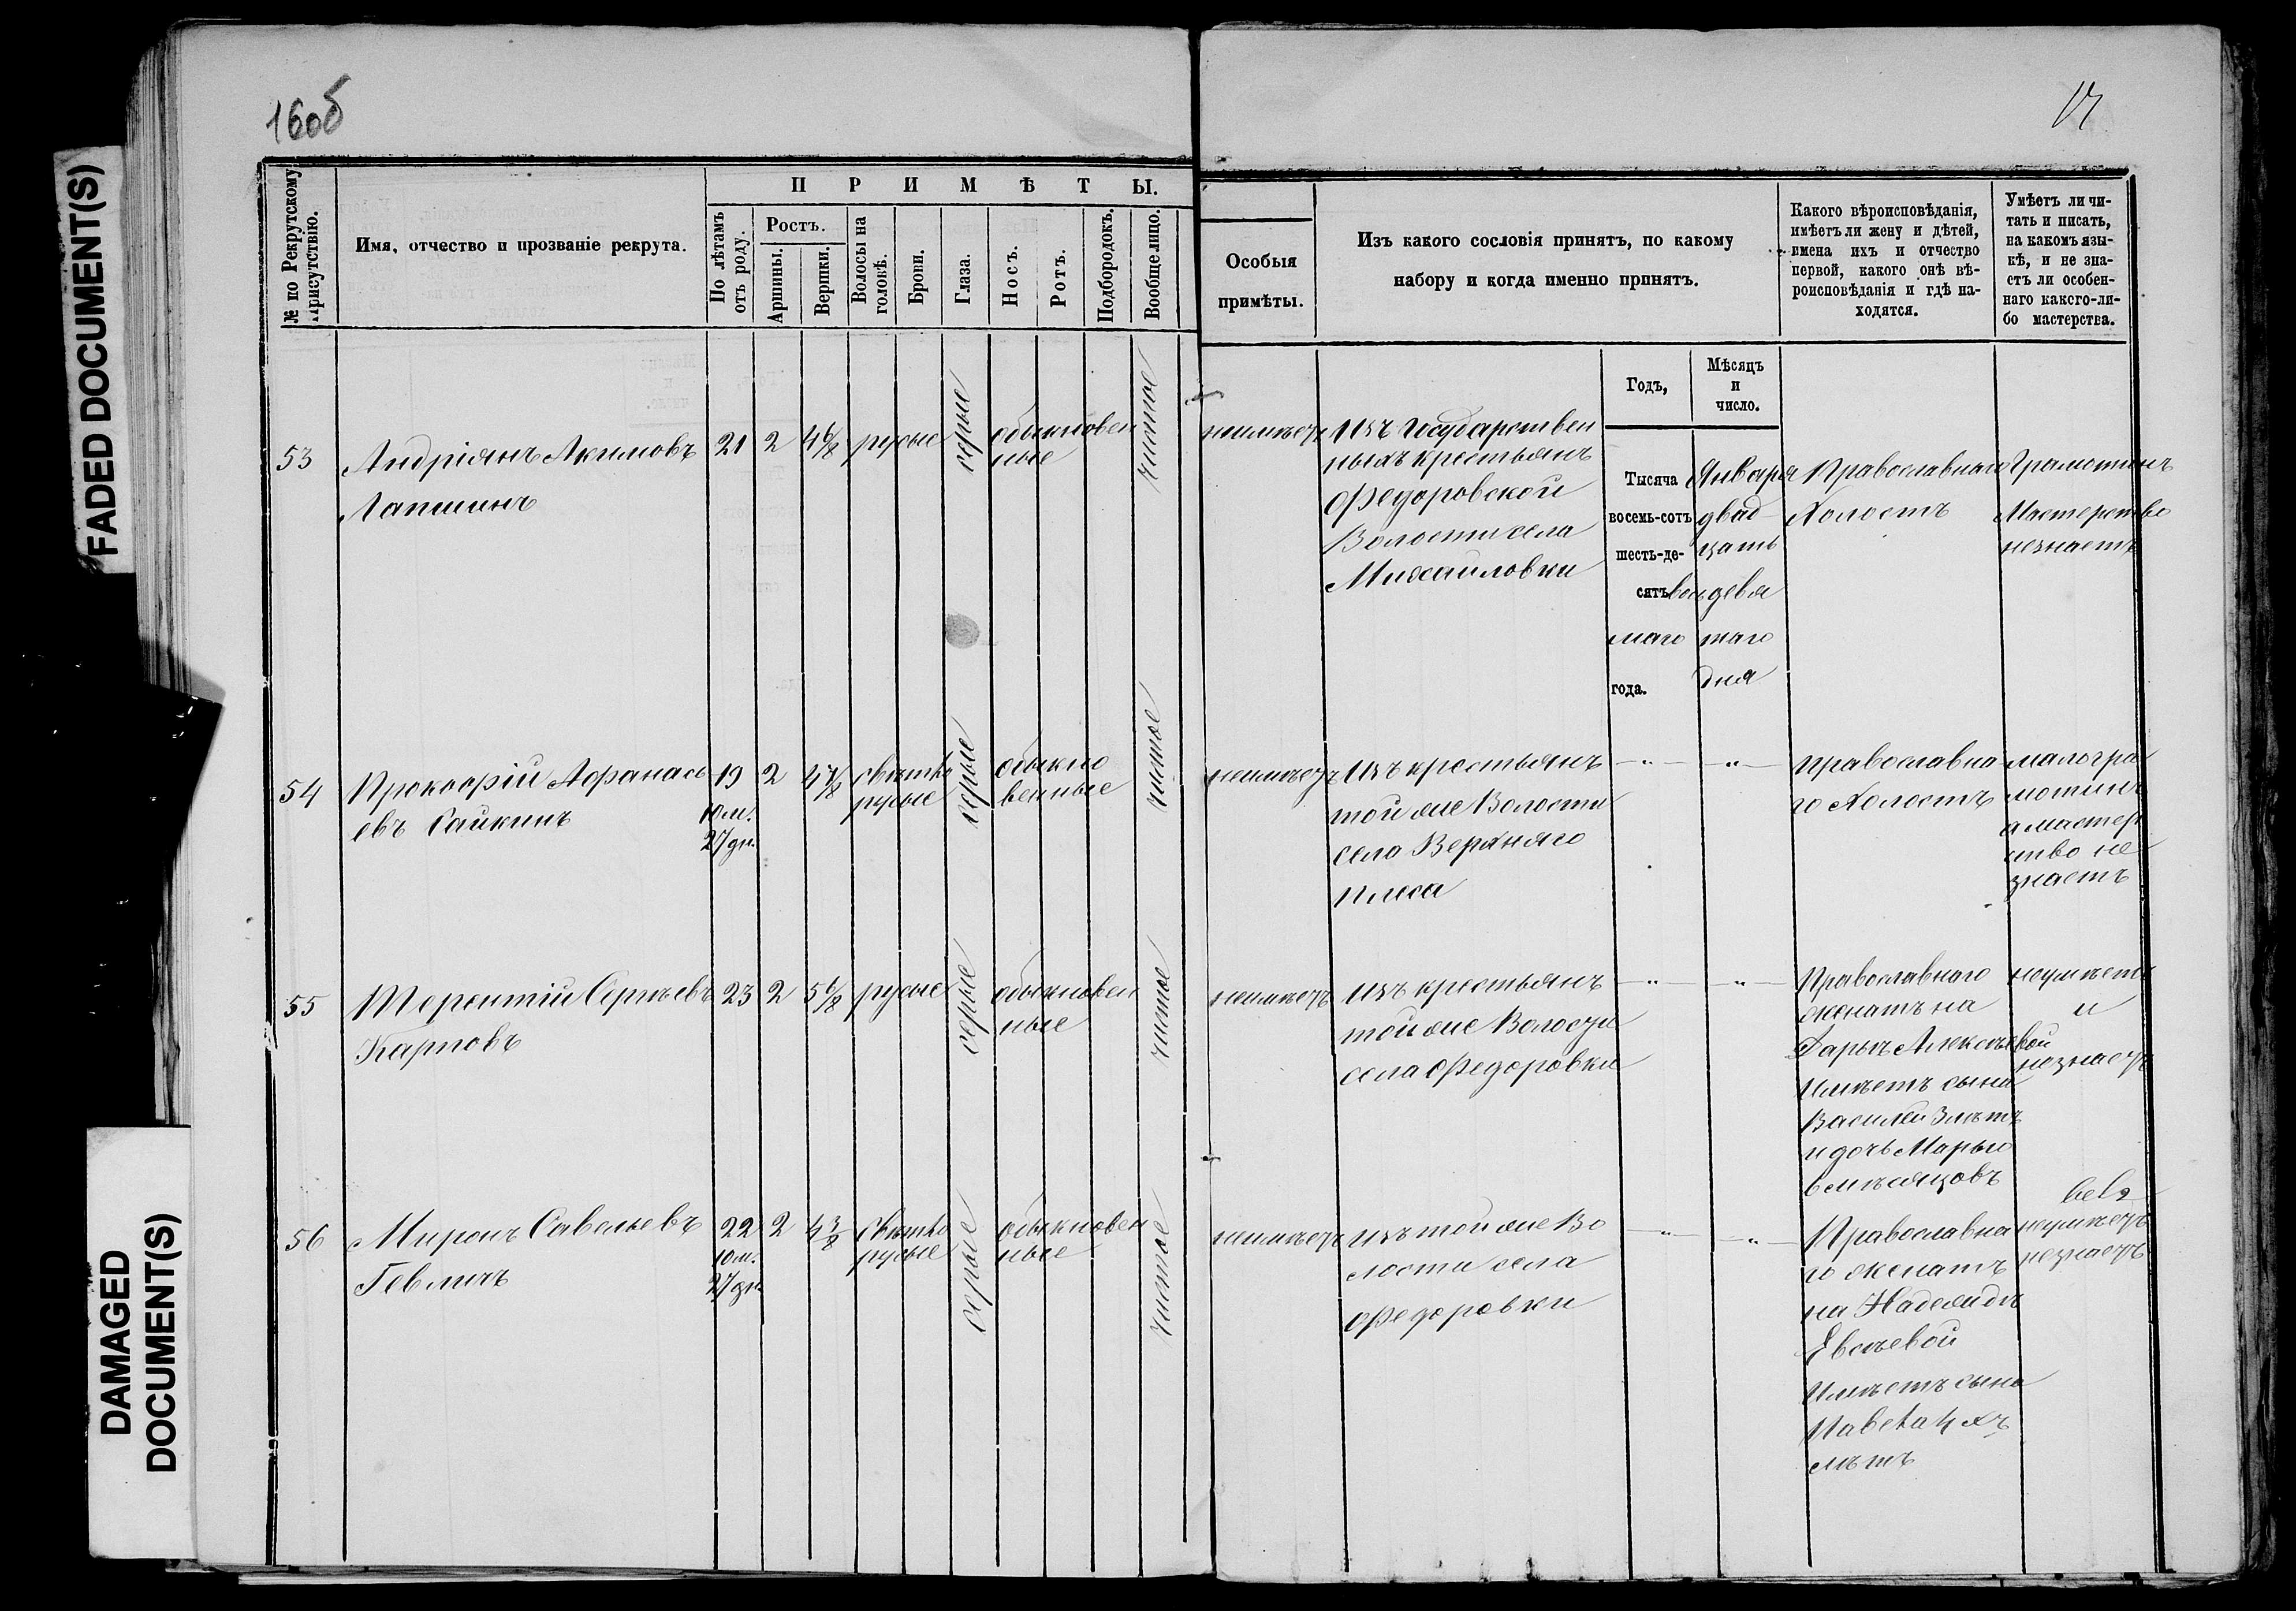 16об
17
FADED DOCUMENT(S)
DAMAGED
DOCUMENT(S)
№ по Рекрутскому
присутствію.
Имя, отчество и прозваніе рекрута.
ПРИМѢТЫ.
По лѣтамъ
отъ роду.
Ростъ.
Аршины.
Вершки.
Волосы на
головѣ.
Брови.
Глаза.
Носъ.
Ротъ.
Подбородокъ.
Вообще лицо.
Особыя
примѣты.
Изъ какого сословія принятъ, по какому
набору и когда именно принятъ.
Какого вѣроисповѣданія,
имѣетъ ли жену и дѣтей,
имена ихъ и отчество
первой, какого онѣ вѣ-
роисповѣданія и гдѣ на-
ходятся.
Умѣетъ ли чи-
тать и писать,
на какомъ язы-
кѣ, и не зна-
етъ ли особен-
наго какого-ли-
бо мастерства.
Годъ,
Мѣсяцъ
и
число.
53
Андріянъ Акимовъ
Лапшинъ
21
2
4 6/8
русые
серые
обыкновен
ные
чистое
неимѣетъ
Изъ Государствен
ныхъ крестьянъ
Федоровской
Волости села
Михайловки
Тысяча
восемь-сотъ
шесть-де-
сятъ вось
маго
года.
Января
двад
цать
девя
таго
дня
Православнаго
Холостъ
Грамотинъ
Мастерство
незнаетъ
54
Прокофій Афанась
евъ Сайкинъ
19
10 м.
27 дн.
2
4 7/8
свѣтло
русые
серые
обыкно
венные
чистое
неимѣетъ
Изъ крестьянъ
той же Волости
села Верхняго
плеса
— " —
— " —
Православна
го Холостъ
малогра
мотинъ
а мастер
ство не
знаетъ
55
Терентій Сергѣевъ
Карповъ
23
2
5 6/8
русые
серые
обыкновен
ные
чистое
неимѣетъ
Изъ крестьянъ
той же Волости
села Федоровки
— " —
— " —
Православнаго
женатъ на
Дарьѣ Алексѣевой
Имѣетъ сына
Василей 3 лѣтъ
и дочь Марью
6 мѣсяцовъ
неумѣетъ
и
незнаетъ
56
Миронъ Савельевъ
Гевличъ
22
10 м.
27 дн.
2
4 3/8
свѣтло
русые
серые
обыкновен
ные
чистое
неимѣетъ
Изъ той же Во
лости села
Федоровки
— " —
— " —
Православна
го женатъ
на Надеждѣ
Евсѣевой
Имѣетъ сына
Павела 4 хъ
лѣтъ
неумѣетъ
незнаетъ